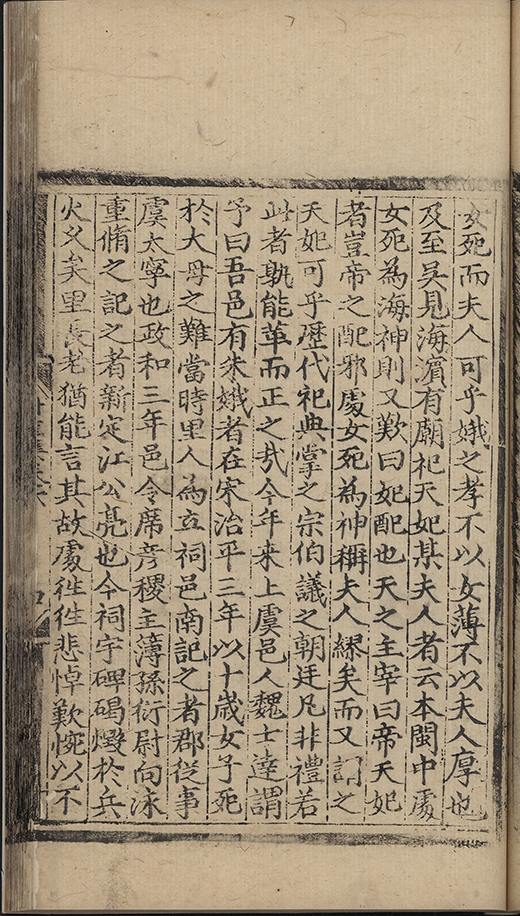 女死而夫人可乎娥之孝不以女薄不以夫人厚也
及至吴見海濵有廟祀天妃某夫人者云本閩中處
女死為海神則又歎曰妃配也天之主宰曰帝天妃
者豈帝之配邪處女死為神稱夫人繆矣而又訶之
天妃可乎歴代祀典掌之宗伯議之朝廷凡非禮若
此者孰能革而正之㢤今年来上虞邑人魏士達謂
予曰吾邑有朱娥者在宋治平三年以十歳女子死
於大母之難當時里人為立祠邑南記之者郡從事
虞太寧也政和三年邑令席彦稷主簿孫衍尉向泳
重脩之記之者新定江公亮也今祠宇碑碣燬於兵
火久矣里長老猶能言其故處徃徃悲悼歎惋以不